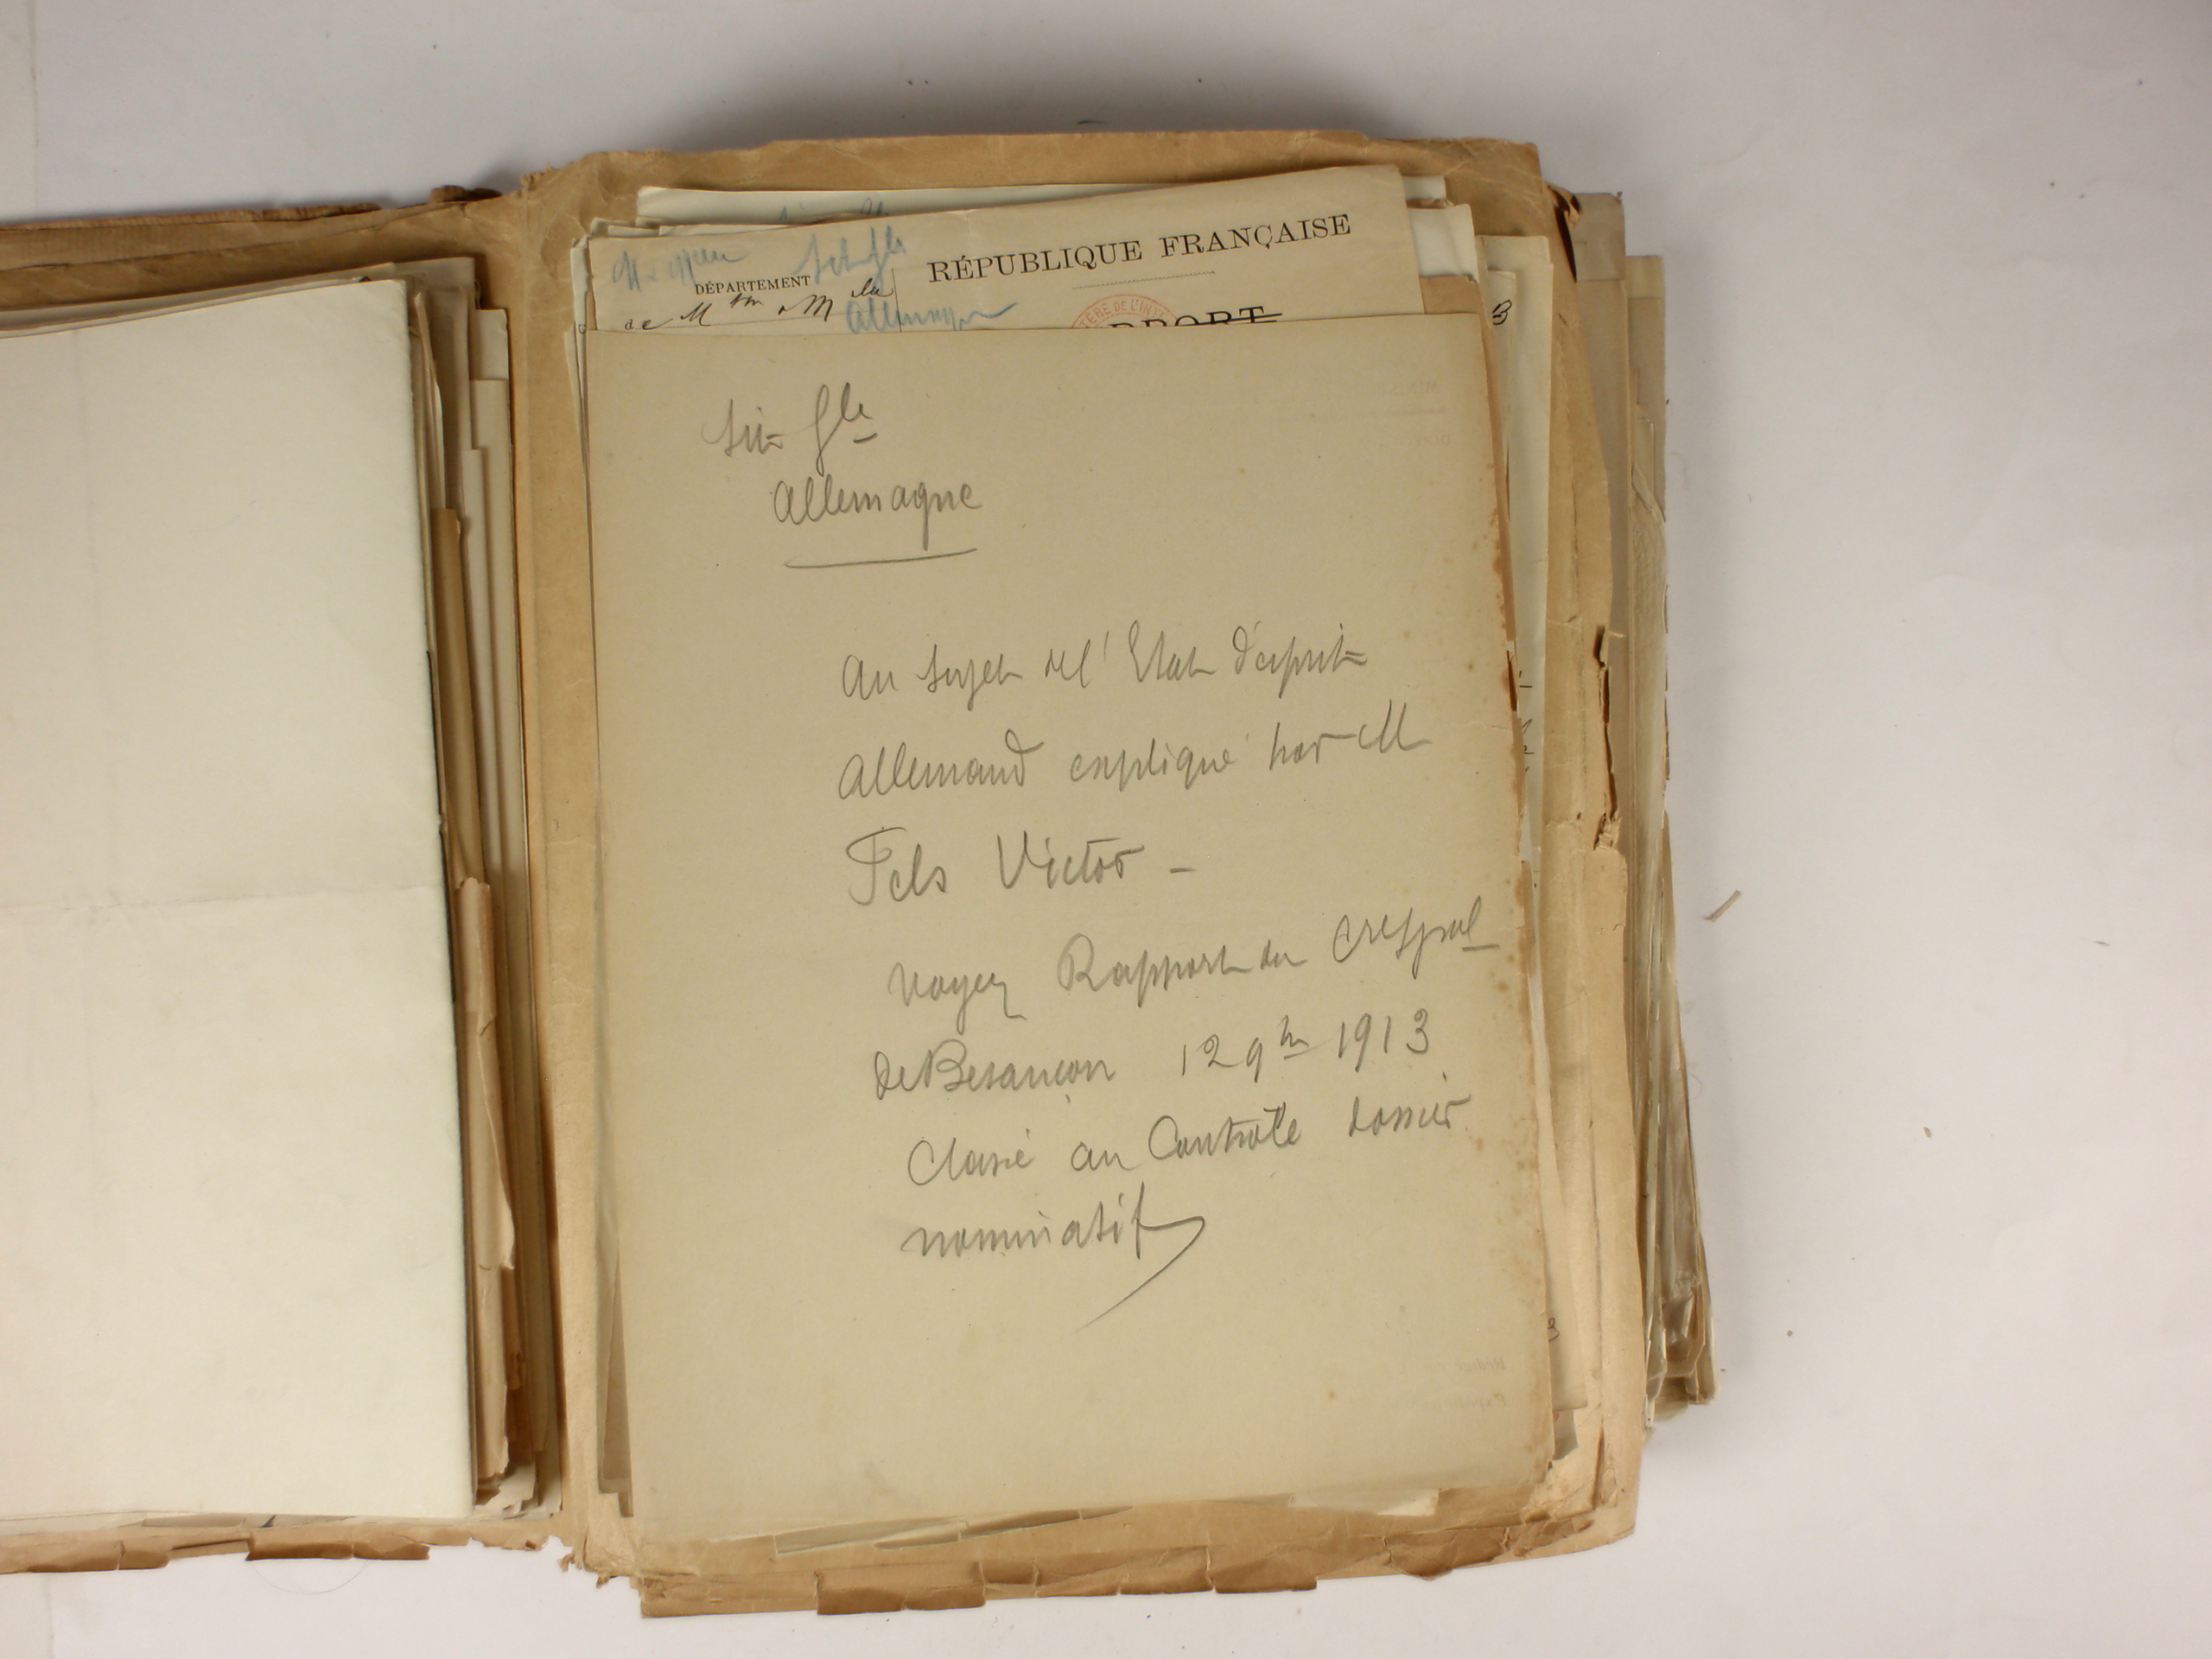 RÉPUBLIQUE FRANÇAISE
DÉPARTEMENT
de Mthe & Mlle
Allemagne
Sit Gle
Allemagne
Au sujet del'Etat d'esprit
Allemand expliqué par M
Fels Victor -
voyez Rapport du CreSpial
de Besançon 12 9bre 1913
Classé au Contrôle dossier
nominatif